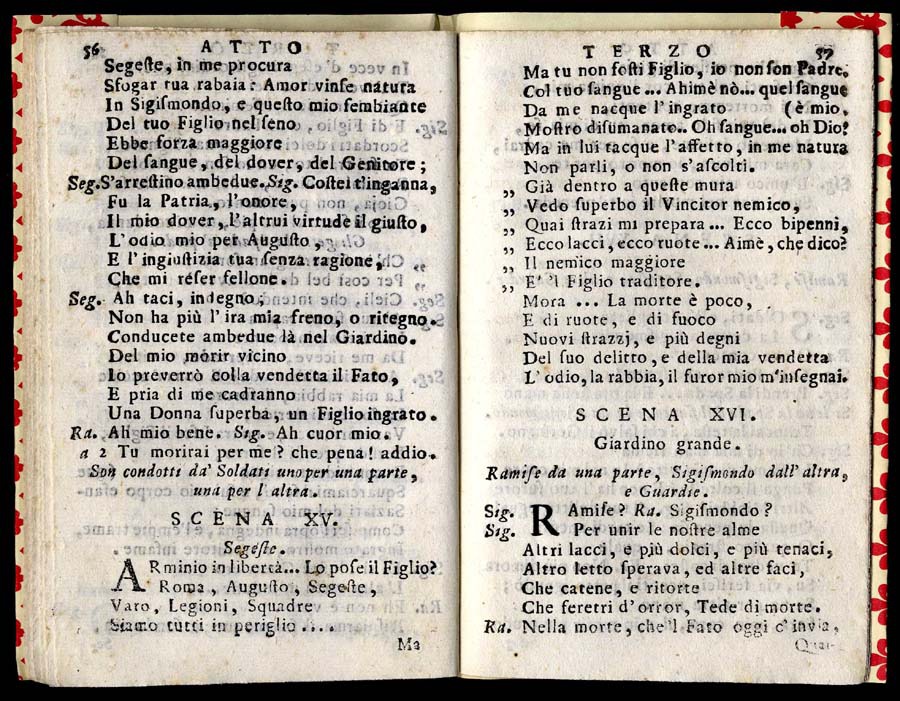 56 ATTO
Segeste, in me procura
Sfogar tua rabaia: Amor vinse natura
In Sigismondo, e questo mio sembiante
Del tuo Figlio nel seno
Ebbe forza maggiore
Del sangue, del dover, del Genitore;
Seg. S'arrestino ambedue. Sig. Costei t'inganna,
Fu la Patria, l'onore,
Il mio dover, l'altrui virtude il giusto,
L'odio mio per Augusto,
E l'ingiustizia tua senza ragione,
Che mi réser fellone.
Seg. Ah taci, indegno,
Non ha più l'ira mia freno, o ritegno.
Conducete ambedue là nel Giardino.
Del mio morir vicino
Io preverrò colla vendetta il Fato,
E pria di me cadranno
Una Donna superba, un Figlio ingrato.
Ra. Ah mio bene. Sig. Ah cuor mio.
a 2 Tu morirai per me? che pena! addio.
Son condotti da' Soldati uno per una parte,
una per l'altra.
SCENA XV.
Segeste.
ARminio in libertà... Lo pose il Figlio?
Roma, Augusto, Segeste,
Varo, Legioni, Squadre
Siamo tutti in periglio ....
Ma
TERZO 57
Ma tu non fosti Figlio, io non son Padre.
Col tuo sangue ... Ahimè nò... quel sangue
Da me nacque l'ingrato (è mio.
Mostro disumanato.. Oh sangue... oh Dio!
Ma in lui tacque l'affetto, in me natura
Non parli, o non s'ascolti.
„ Già dentro a queste mura
„ Vedo superbo il Vincitor nemico,
„ Quai strazi mi prepara ... Ecco bipenni,
„ Ecco lacci, ecco ruote ... Aimè, che dico?
„ Il nemico maggiore
„ E' 'l Figlio traditore.
Mora ... La morte è poco,
E di ruote, e di fuoco
Nuovi strazzj, e più degni
Del suo delitto, e della mia vendetta
L'odio, la rabbia, il furor mio m'insegnai.
SCENA XVI.
Giardino grande.
Ramise da una parte, Sigismondo dall'altra,
e Guardie.
Sig. RAmise? Ra. Sigismondo?
Sig. Per unir le nostre alme
Altri lacci, e più dolci, e più tenaci,
Altro letto sperava, ed altre faci,
Che catene, e ritorte
Che feretri d'orror, Tede di morte.
Ra. Nella morte, che 'l Fato oggi c'invia,
Quai-